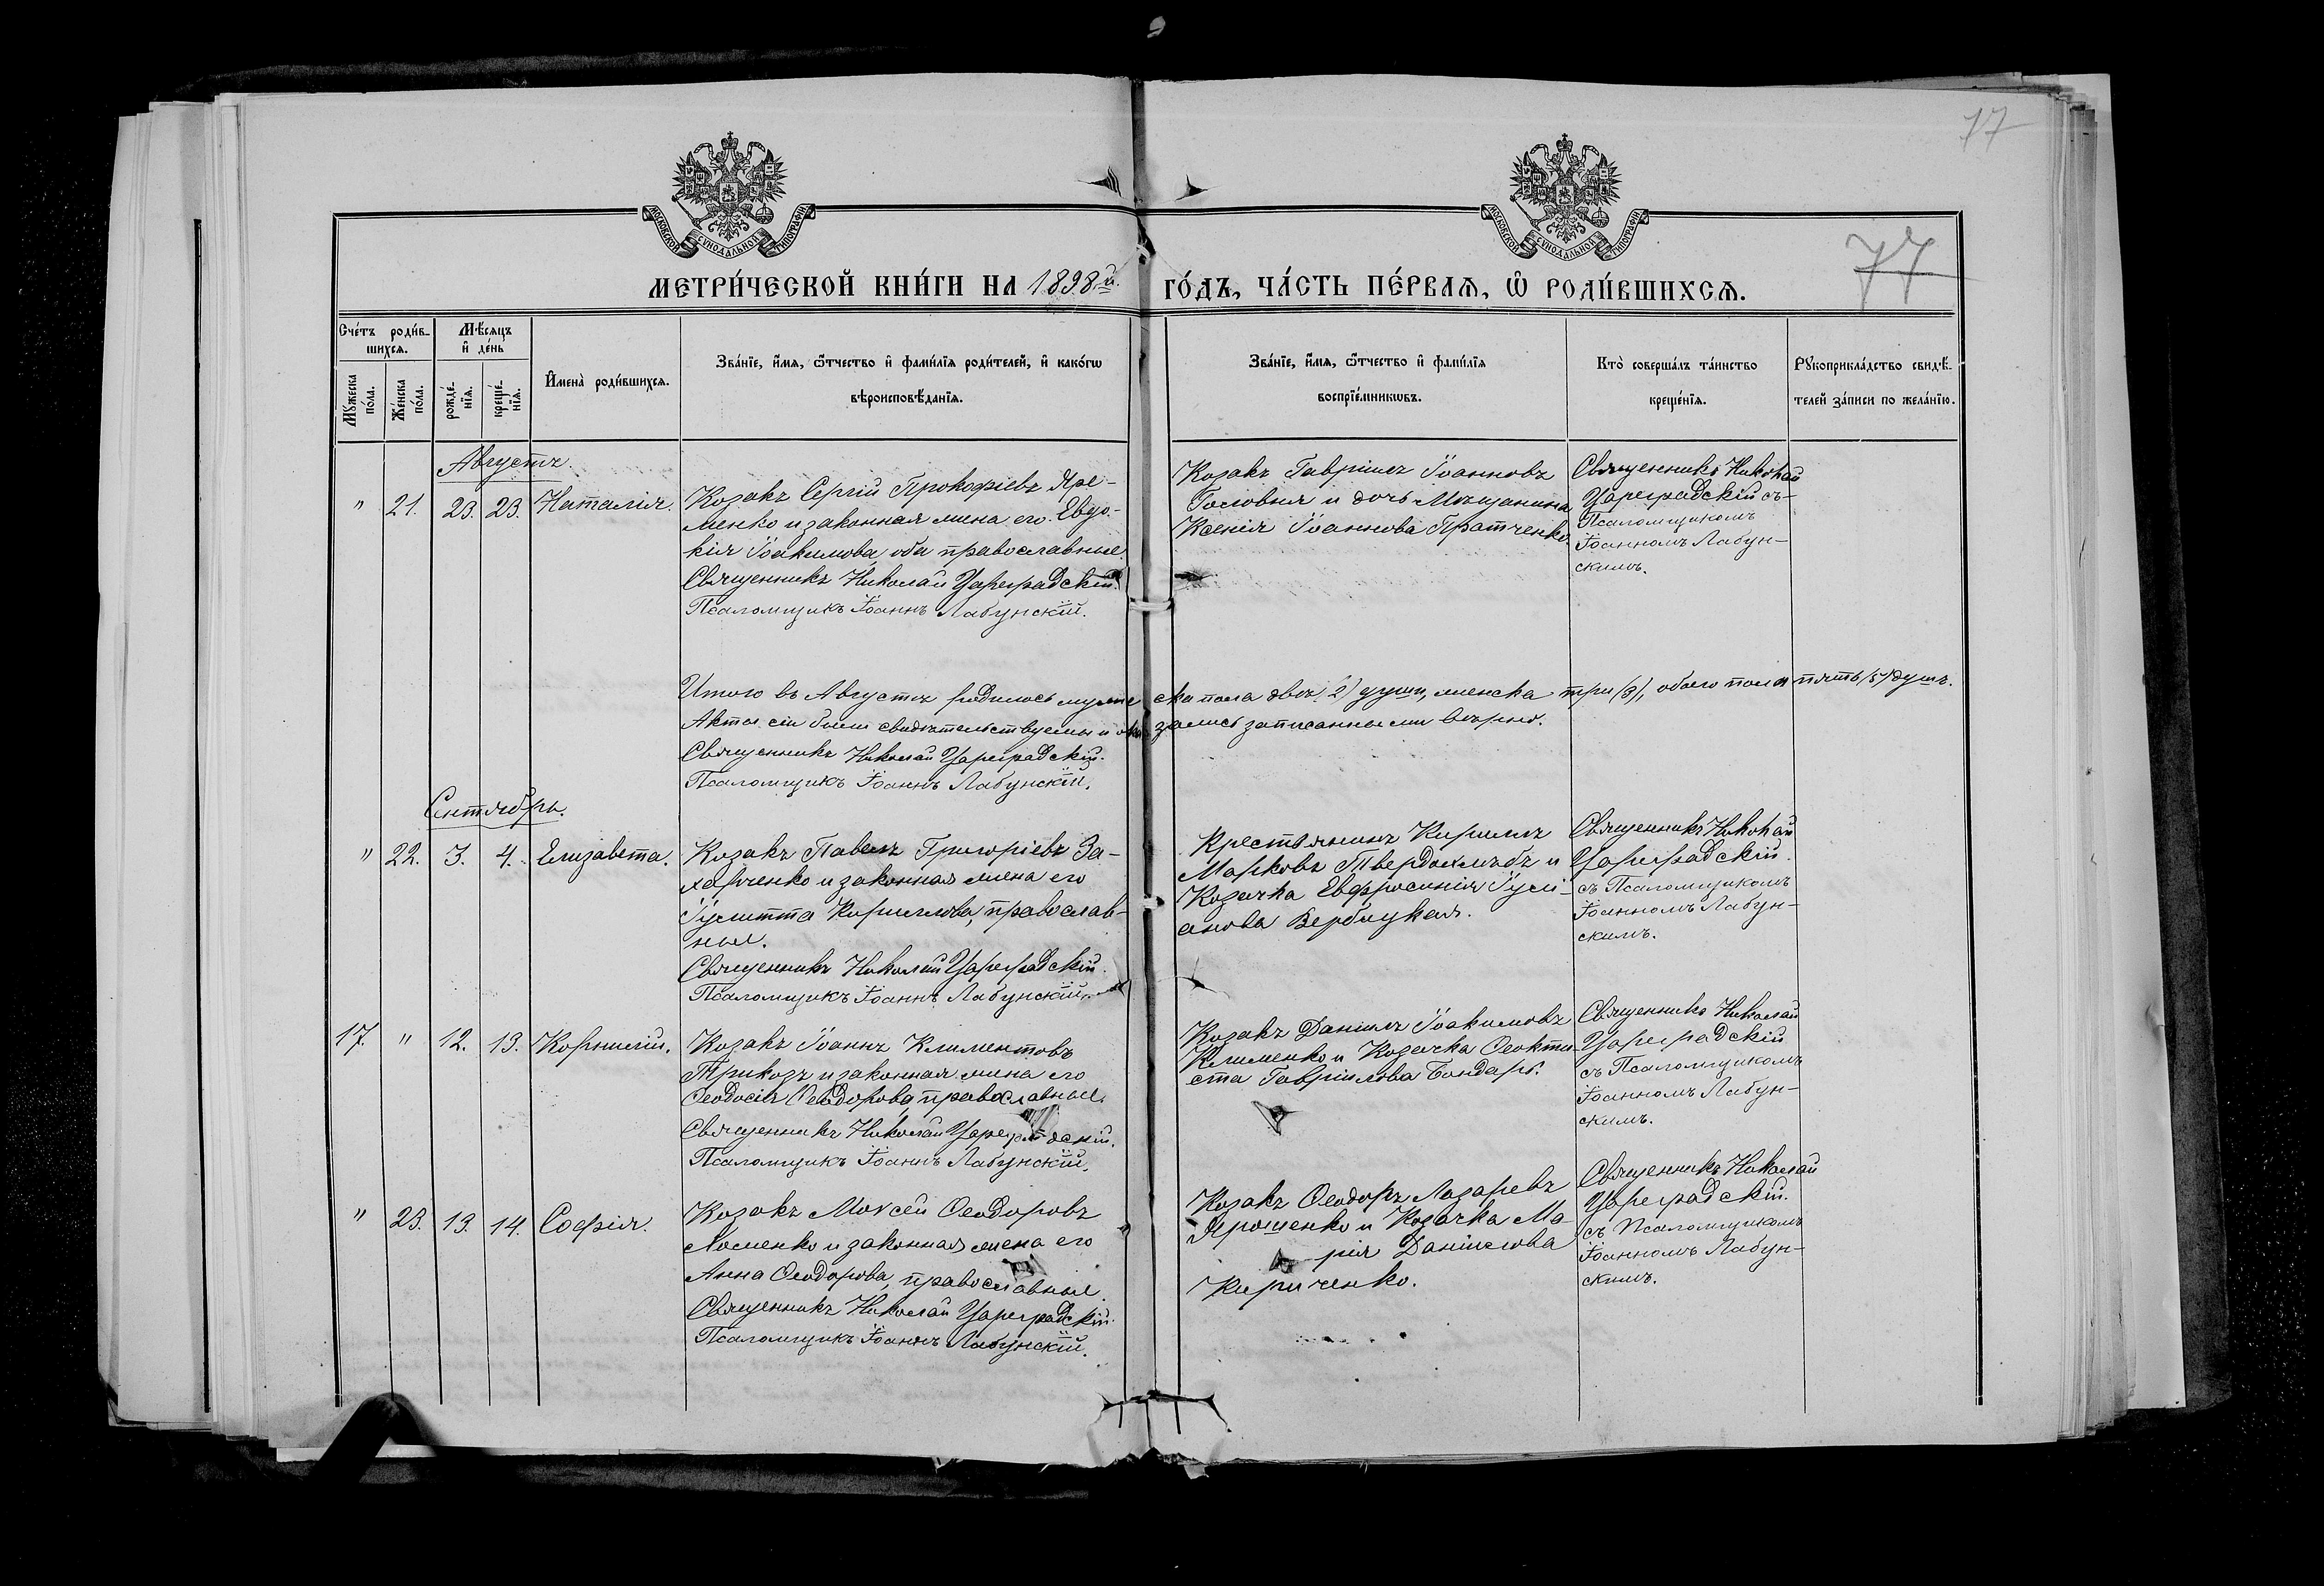 77
МОСКОВСКОЙ СУНОДАЛЬНОЙ ТИПОГРАФІИ
МОСКОВСКОЙ СУНОДАЛЬНОЙ ТИПОГРАФІИ
77
МЕТРИ́ЧЕСКОЙ КНИ́ГИ НА 1898й. ГО́ДЪ, ЧА́СТЬ ПЕ́РВАѦ, Ѽ РОДИ́ВШИХСѦ.
Сче́тъ роди́в-
шихсѧ.
Мѣ́сѧцъ
и҆ де́нь
Мꙋжеска
по́ла.
Же́нска
по́ла.
рожде́-
нїѧ.
креще́-
нїѧ.
И҆мена̀ роди́вшихсѧ.
Зва́нїе, и҆́мѧ, ѻ҆́тчество и҆ фами́лїѧ роди́телей, и҆ како́гѡ
вѣроисповѣ́данїѧ.
Зва́нїе, и҆́мѧ, ѻ҆́тчество и҆ фами́лїѧ
воспрїе́мникѡвъ.
Кто̀ соверша́лъ та́инство
креще́нїѧ.
Рꙋкоприкла́дство свидѣ́-
телей за́писи по жела́нїю.
Августъ.
" 21. 23. 23. Наталія.
Козакъ Сергій Прокофіевъ Яре-
менко и законная жена его Евдо-
кія Іоакимова, оба православные.
Священникъ Николай Цареградскій.
Псаломщикъ Іоаннъ Лабунскій.
Козакъ Гавріилъ Іоанновъ
Головня и дочь Мѣщанина
Ксенія Іоаннова Пратченко.
Священникъ Николай
Цареградскій съ
Псаломщикомъ
Іоанномъ Лабун-
скимъ.
Итого въ Августѣ родилось мужеска пола двѣ (2) души, женска три (3), обоего пола пять (5) душъ.
Акты сіи были свидѣтельствуемы и оказались записанными вѣрно.
Священникъ Николай Цареградскій.
Псаломщикъ Іоаннъ Лабунскій.
Сентябрь.
" 22. 3. 4. Елизавета.
Козакъ Павелъ Григоріевъ За-
харченко и законная жена его
Іулитта Кириллова, православ-
ные.
Священникъ Николай Цареградскій.
Псаломщикъ Іоаннъ Лабунскій.
Крестьянинъ Кириллъ
Марковъ Твердохлѣбъ и
Козачка Евфросинія Іулі-
анова Вербицкая.
Священникъ Николай
Цареградскій
съ Псаломщикомъ
Іоанномъ Лабун-
скимъ.
17. " 12. 13. Корнилій.
Козакъ Іоаннъ Климентовъ
Трикозъ и законная жена его
Ѳеодосія Ѳеодорова, православные.
Священникъ Николай Цареградскій.
Псаломщикъ Іоаннъ Лабунскій.
Козакъ Даніилъ Іоакимовъ
Клименко и Козачка Ѳеокти-
ста Гавріилова Бондарь.
Священникъ Николай
Цареградскій
съ Псаломщикомъ
Іоанномъ Лабун-
скимъ.
" 23. 13. 14. Софія.
Козакъ Моѵсей Ѳеодоровъ
Хоменко и законная жена его
Анна Ѳеодорова, православные.
Священникъ Николай Цареградскій.
Псаломщикъ Іоаннъ Лабунскій.
Козакъ Ѳеодоръ Лазаревъ
Ярошенко и Козачка Ма-
рія Даніилова
Кириченко.
Священникъ Николай
Цареградскій.
съ Псаломщикомъ
Іоанномъ Лабун-
скимъ.